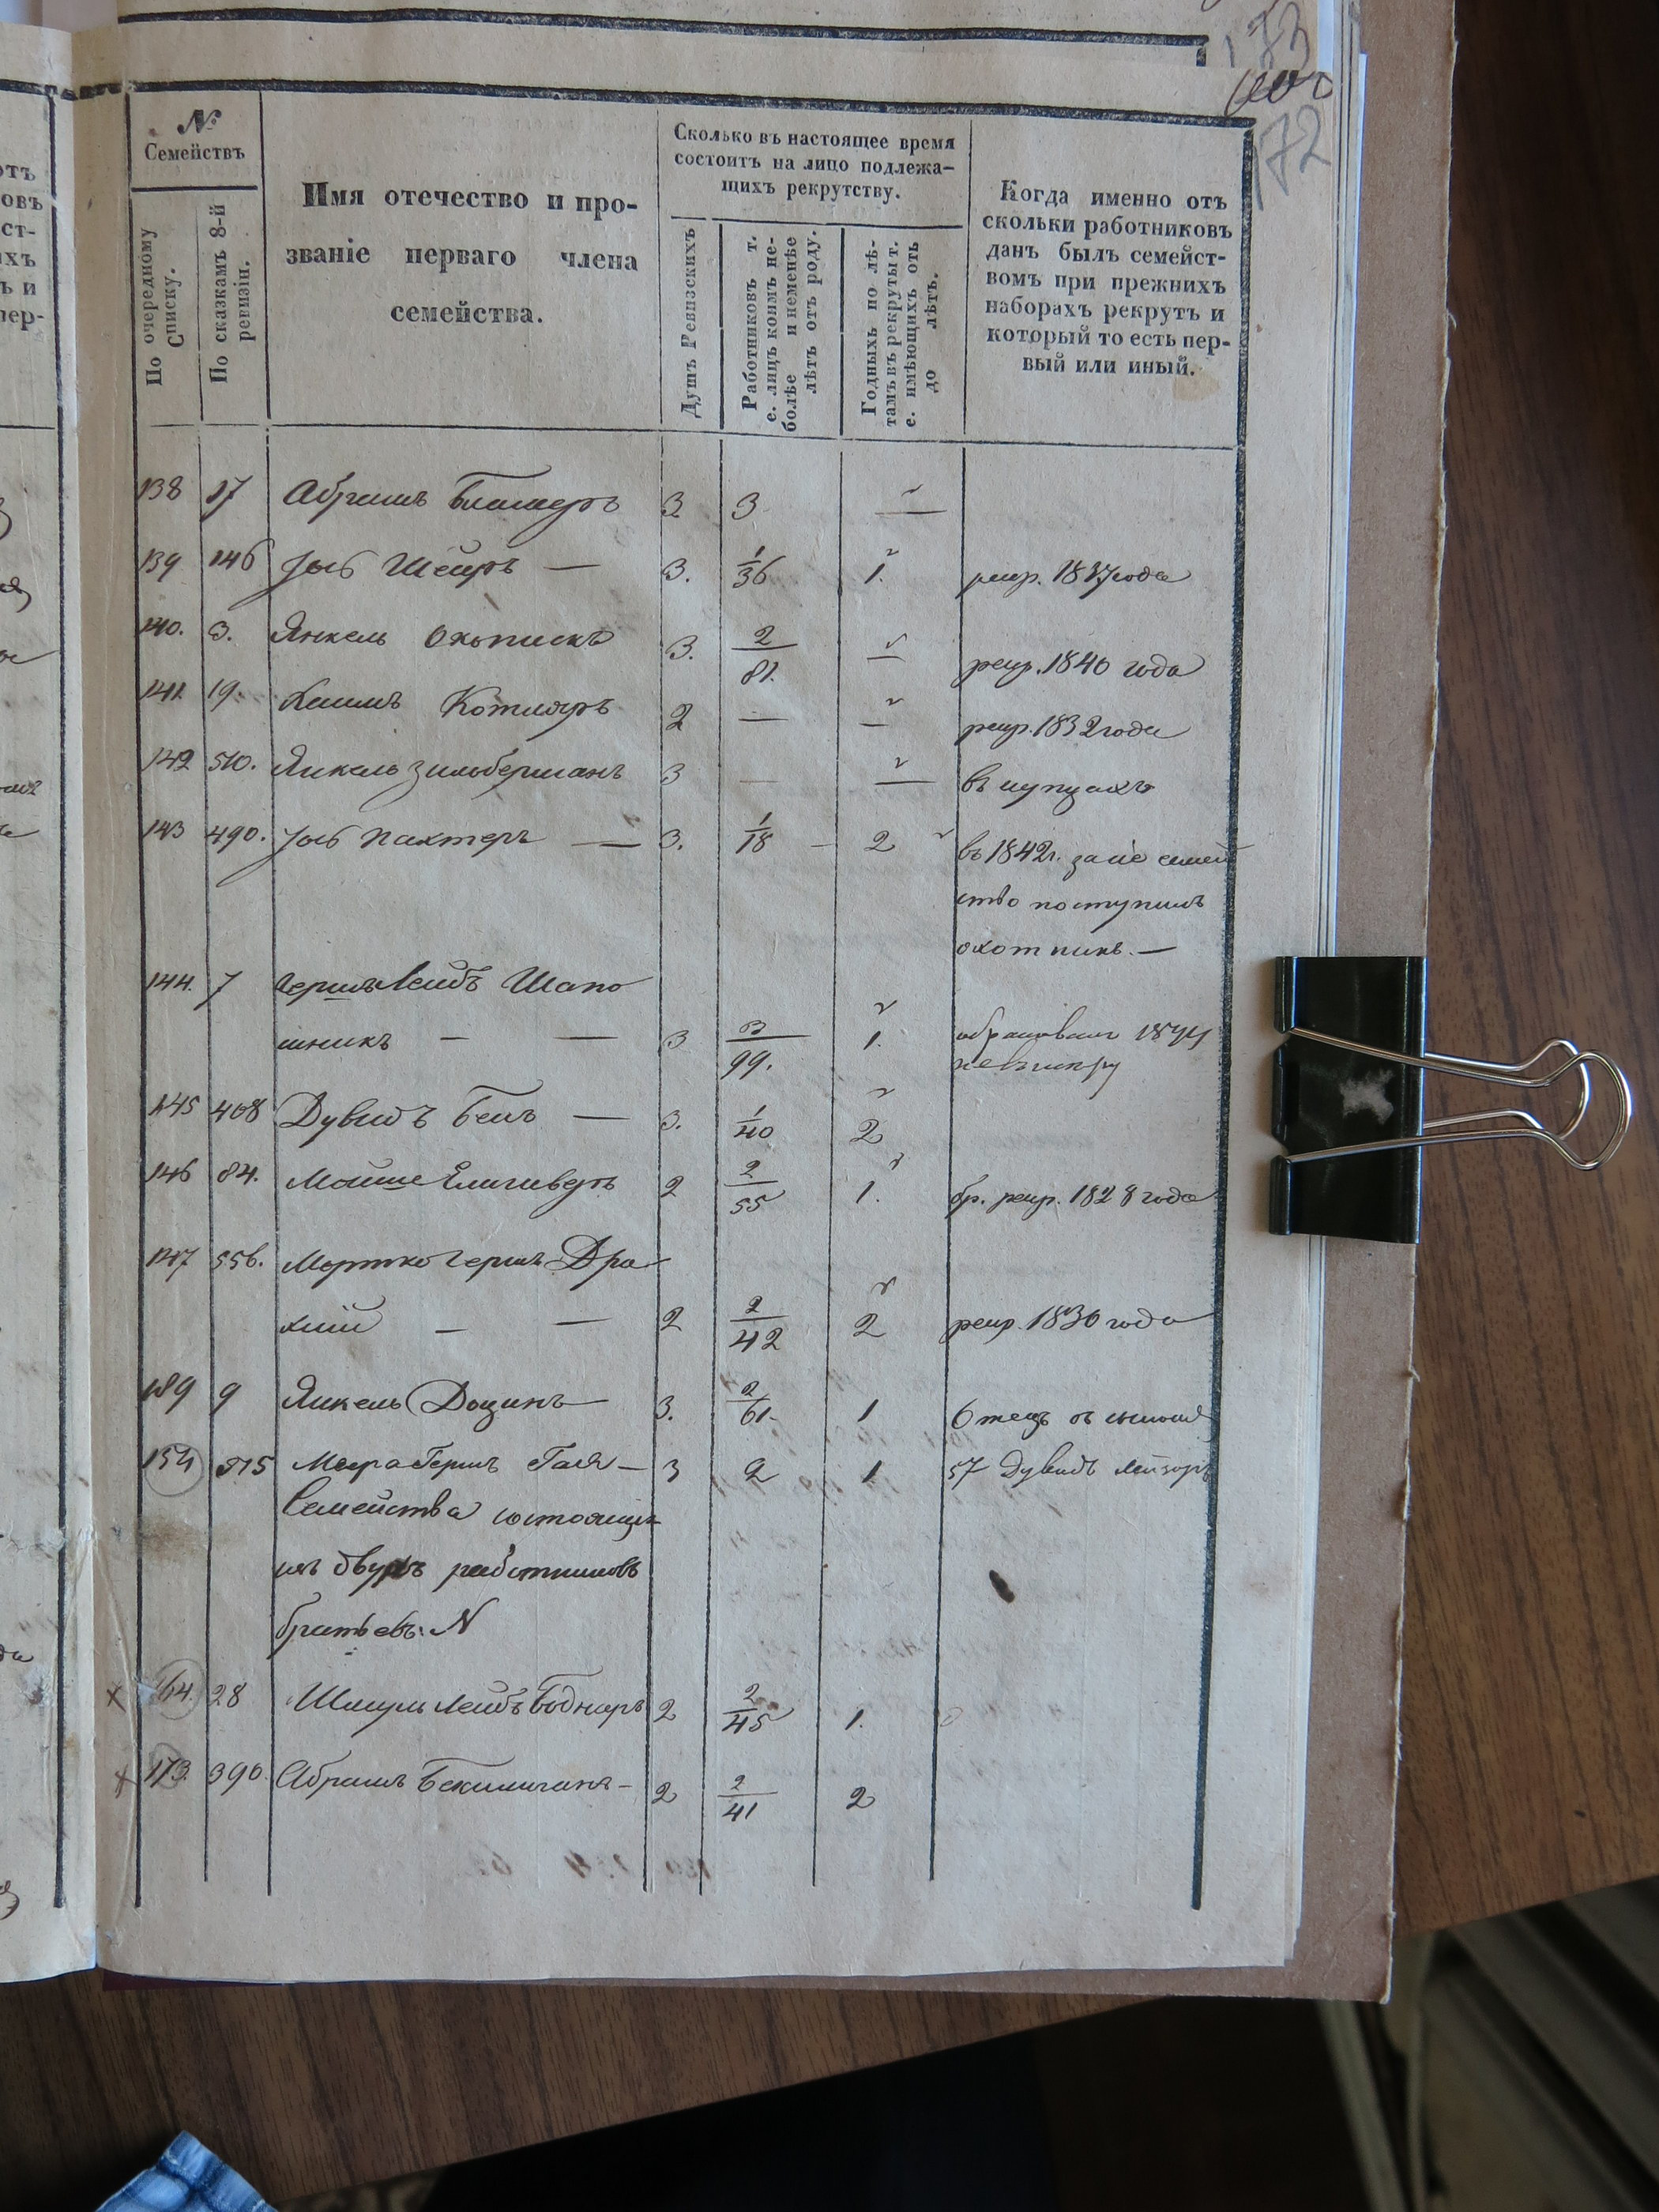 173
172
№
Семействъ
По очередному
Списку.
По сказкамъ 8-й
ревизіи.
Имя отечество и про-
званіе перваго члена
семейства.
Сколько въ настоящее время
состоитъ на лицо подлежа-
щихъ рекрутству.
Душъ Ревизскихъ
Работниковъ т.
е. лицъ коимъ не-
болѣе и неменѣе
лѣтъ отъ роду.
Годныхъ по лѣ-
тамъ въ рекруты т.
е. имѣющихъ отъ
до лѣтъ.
Когда именно отъ
скольки работниковъ
данъ былъ семейст-
вомъ при прежнихъ
наборахъ рекрутъ и
который то есть пер-
вый или иный.
138 17 Абрамъ 3 3 —
139 146 Іосъ — 3. 1/36 1. рекр. 1837 года
140. 3. Янкель 3. 2/81. — рекр. 1840 года
141. 19. Хаимъ Котляръ 2 — — рекр. 1832 года
142 510. Янкель Зильберманъ 3 — — въ купцахъ
143 490. Іосъ Пахтеръ — 3. 1/18 — 2 въ 1842г. за сіе семей
ство поступилъ
охотникъ. —
144. 7 Гершъ Лейбъ Шапо
шникъ — — 3 3/99. 1. 1844
145 408 Дувидъ — 3. 1/40 2
146 84. Мойше 2 2/55 1. бр. рекр. 1828 года
147 556. Мортко Гершъ Дра
хлій — — 2 2/42 2 рекр. 1836 года
189 9 Янкель — 3. 2/61. 1 Отецъ съ сыномъ
154 515 Гершъ — 3 2 1 57 Дувидъ Лейзоръ
Семейства состоящія
изъ двухъ работниковъ
братьевъ: N
х 164. 28 Шмуль Лейбъ Боднаръ 2 2/45 1.
х 173. 390. Абрамъ — 2 2/41 2